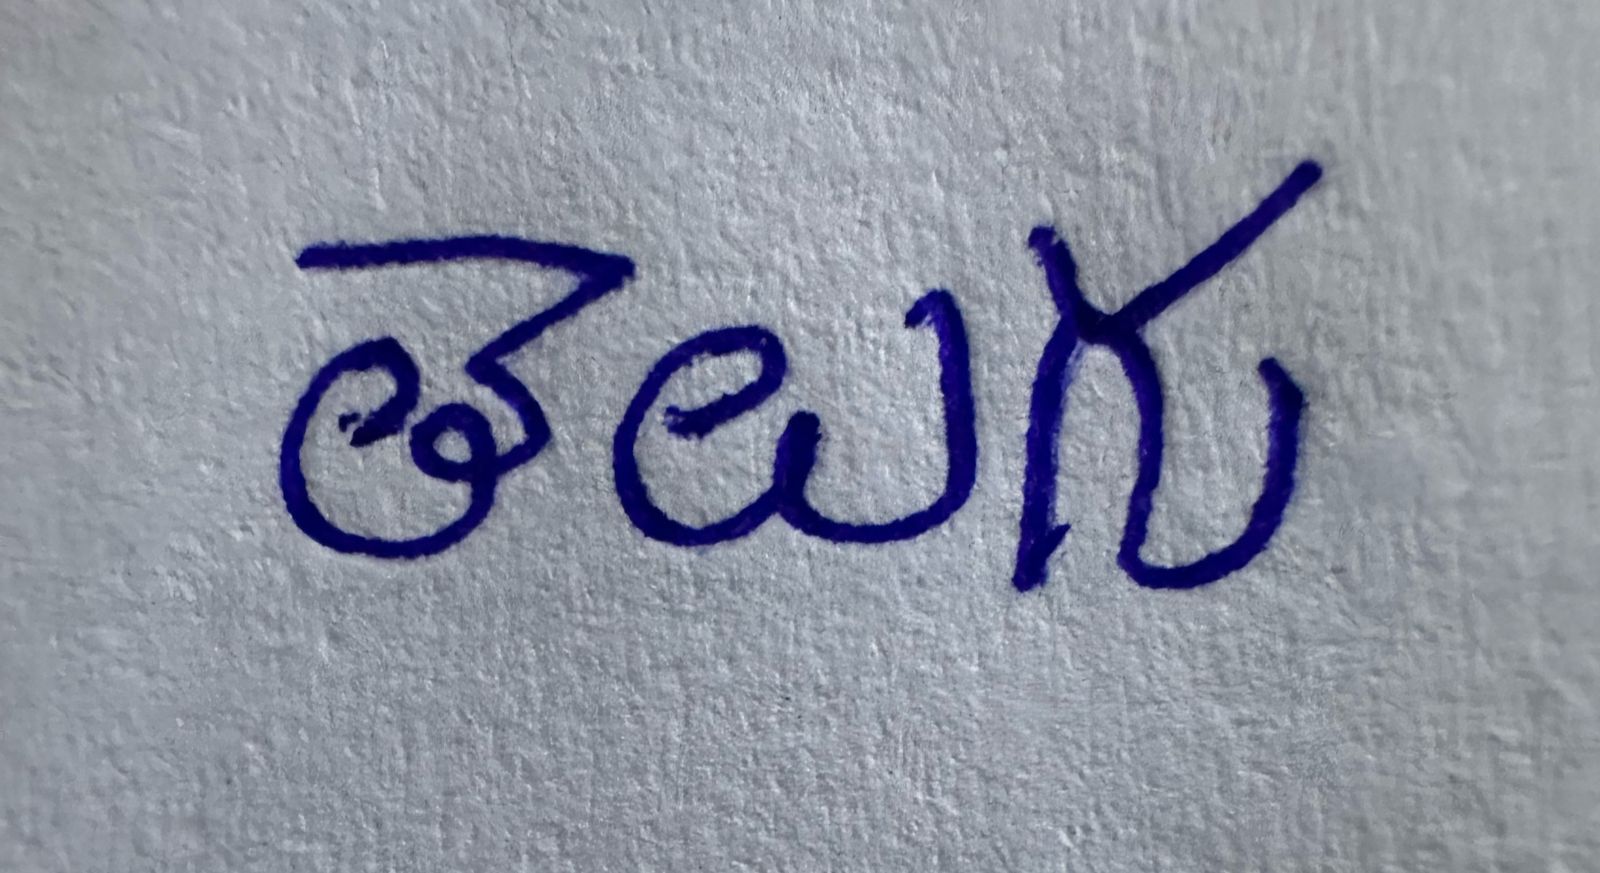 తెలుగు